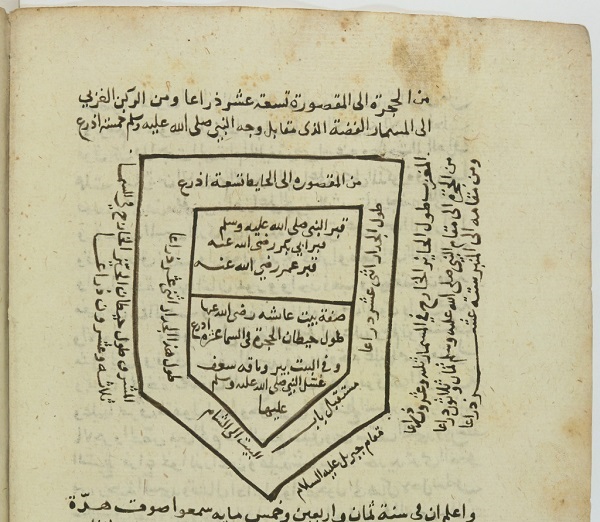 من الحجرة الى المقصورة تسعة عشر ذراعا ومن الركن الغربي
الى المسمار الفضة الذى مقابل وجه النبي صلى الله عليه وسلم خمسة اذرع
من المقصوره الى الحايط تسعة اذرع
قبر النبي صلى الله عليه وسلم
قبر ابي بكر رضي الله عنه
قبر عمر رضي الله عنه
صفة بيت عايشه رضى الله عنها
طول حيطان الحجرة في السما عشرة اذرع
وفي البيت بير وناقه سعف
غتسل النبي صلى الله عليه وسلم
عليها
طول الجدار اثنى عشر ذراعا
طول هذا الجدار اثنى عشر ذراعا
المشرق طول حيطان الحيز الخارج في السما
ثلاثه وعشرون ذراعا
المغرب طول الحايز الخارج في السما ثلثه وعشرون ذراعا
من الحجرة الى مقام النبي صلى الله عليه وسلم ثمان وثلاثون ذراعا
ومن مقامه الى المنبر ستة عشر ذراعا
البيت الى الشام
مستقبل باب
مقام جبريل عليه السلام
واعلم ان في سنة ثمان واربعين وخمس مايه سمعوا صوت هدة